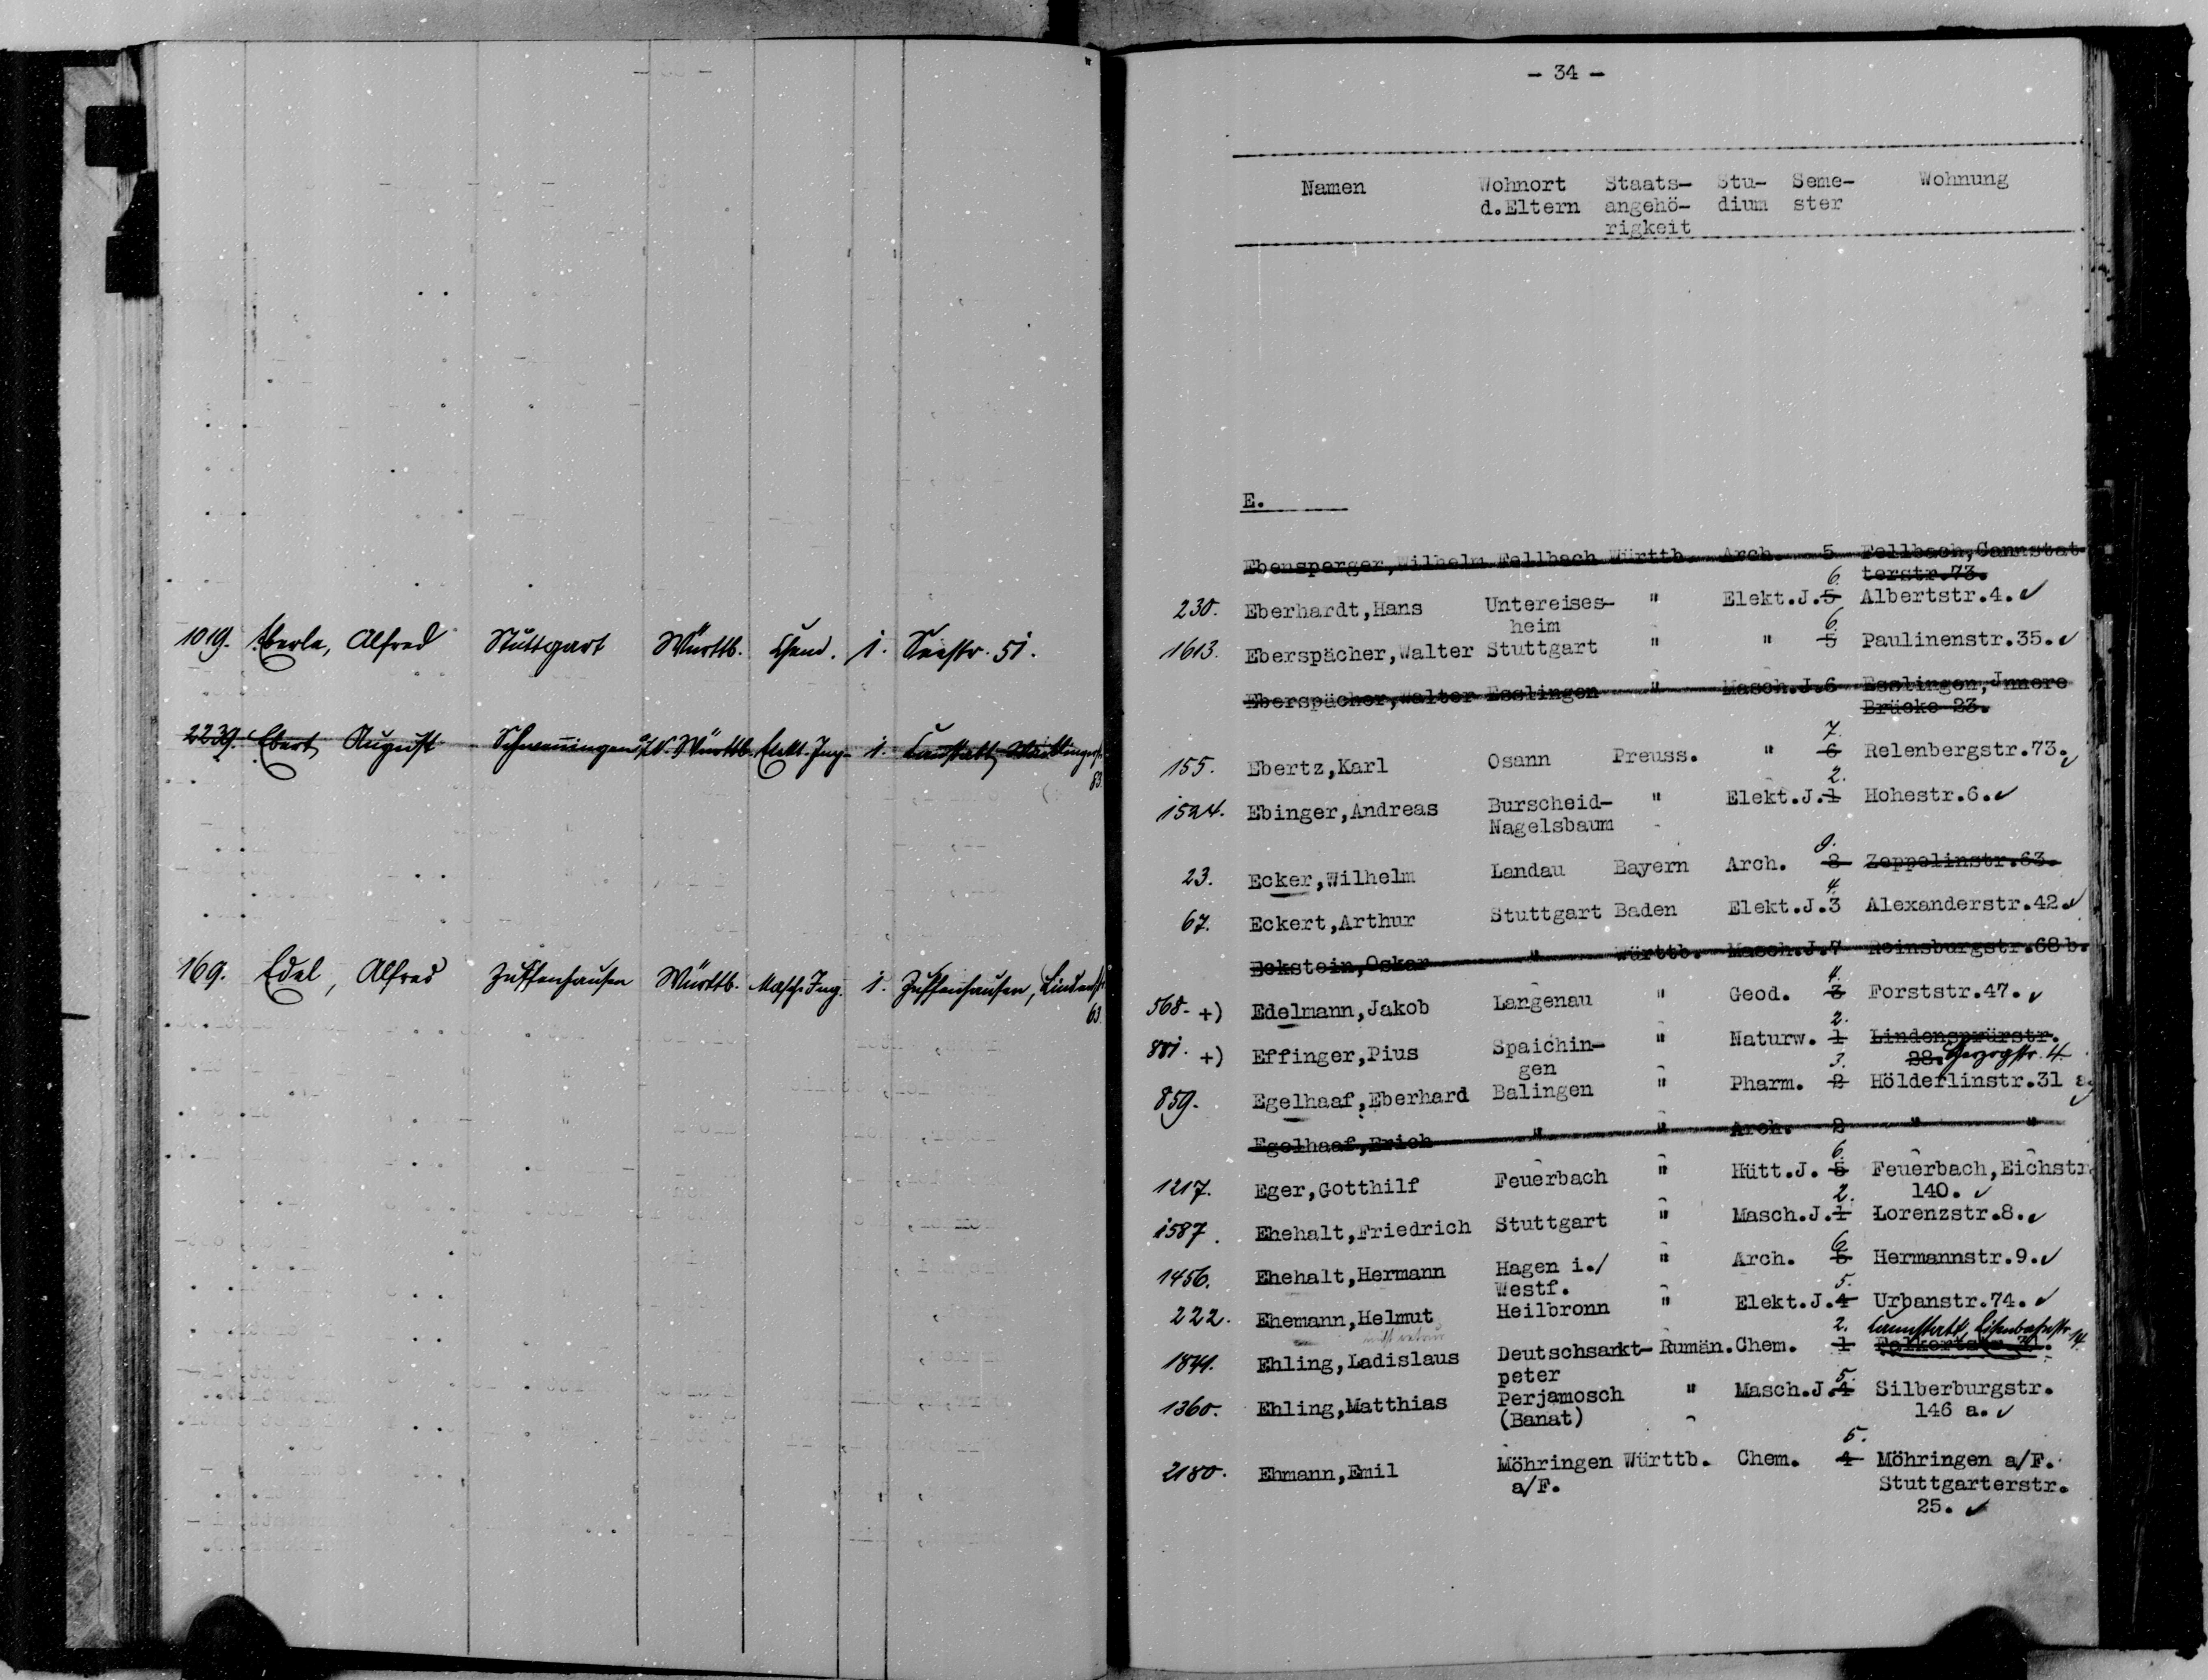 1019. Eberle, Alfred Stuttgart Württb. Chem. 1. Seestr. 51.
2239. Ebert, August Schwenningen a/N. Württb. Elekt. Ing. 1. Cannstatt,
83.
169. Edel, Alfred Zuffenhausen Württb. Masch. Ing. 1. Zuffenhausen, Lindenstr.
63.
- 34 -
Namen Wohnort Staats- Stu- Seme- Wohnung
d.Eltern angehö- dium ster
rigkeit
E.
Ebensperger,Wilhelm Fellbach Württb. Arch. 5 Fellbach,Cannstat-
6. terstr.73.
230. Eberhardt,Hans Untereises- " Elekt.J.5 Albertstr.4.
heim 6.
1613. Eberspächer,Walter Stuttgart " " 5 Paulinenstr.35.
Eberspächer,Walter Esslingen " Masch.J.6 Esslingen,Jnnere
Brücke 23.
7.
155. Ebertz,Karl Osann Preuss. " 6 Relenbergstr.73.
2.
1524. Ebinger,Andreas Burscheid- " Elekt.J.1 Hohestr.6.
Nagelsbaum
9.
23. Ecker,Wilhelm Landau Bayern Arch. 8 Zeppelinstr.63.
4.
67. Eckert,Arthur Stuttgart Baden Elekt.J.3 Alexanderstr.42.
Eckstein,Oskar " Württb. Masch.J.7 Reinsburgstr.68 b.
4.
568. +) Edelmann,Jakob Langenau " Geod. 3 Forststr.47.
2.
881. +) Effinger,Pius Spaichin- " Naturw. 1 Lindenspürstr.
gen 3. 28. Herzogstr. 4.
859. Egelhaaf,Eberhard Balingen " Pharm. 2 Hölderlinstr.31 a.
Egelhaaf,Erich " " Arch. 2 " "
6.
1217. Eger,Gotthilf Feuerbach " Hütt.J. 5 Feuerbach,Eichstr.
2. 140.
1587. Ehehalt,Friedrich Stuttgart " Masch.J.1 Lorenzstr.8.
6
1456. Ehehalt,Hermann Hagen i./ " Arch. 5 Hermannstr.9.
Westf. 5.
222. Ehemann,Helmut Heilbronn " Elekt.J.4 Urbanstr.74.
2. Cannstatt, Eisenbahnstr. 14.
1841. Ehling,Ladislaus Deutschsarkt- Rumän. Chem. 1 Falkertstr.
peter 5.
1360. Ehling,Matthias Perjamosch " Masch.J.4 Silberburgstr.
(Banat) 146 a.
5.
2180. Ehmann,Emil Möhringen Württb. Chem. 4 Möhringen a/F.
a/F. Stuttgarterstr.
25.